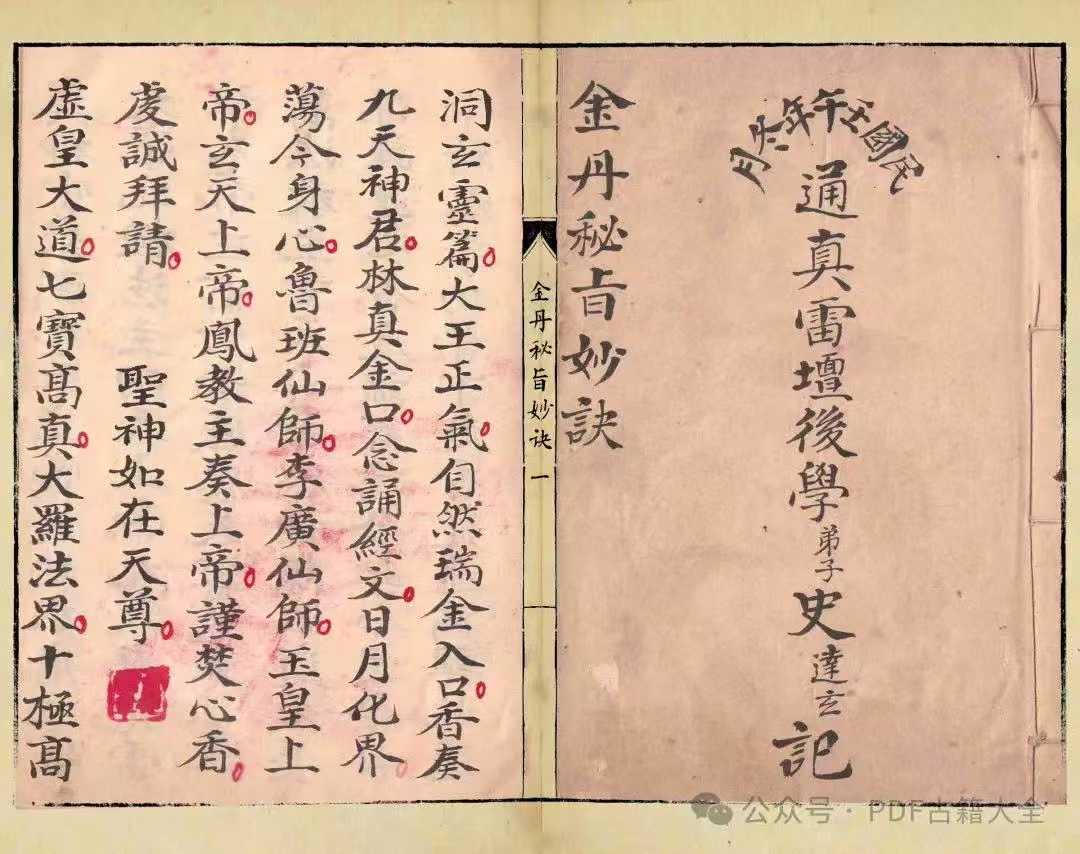 民國壬午年六月
通真雷壇後學弟子史達玄記
金丹秘旨妙訣
金丹秘旨妙訣 一
洞玄靈篇。大王正氣。自然瑞金入口。香奏
九天神君。林真金口。念誦經文。日月化界。
蕩今身心。魯班仙師。李廣仙師。玉皇上
帝。玄天上帝。鳳教主奏上帝。謹焚心香。
虔誠拜請。 聖神如在天尊。
虛皇大道。七寶髙真。大羅法界。十極髙
公众号 · PDF古籍大全